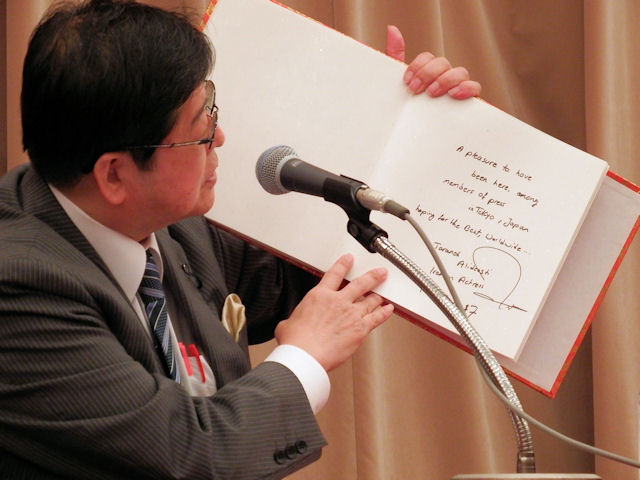 A pleasure to have
been here, among
members of press
in Tokyo, Japan
hoping for the Best, Worldwide...
Taraneh
Alidoosti
Iranian Actress